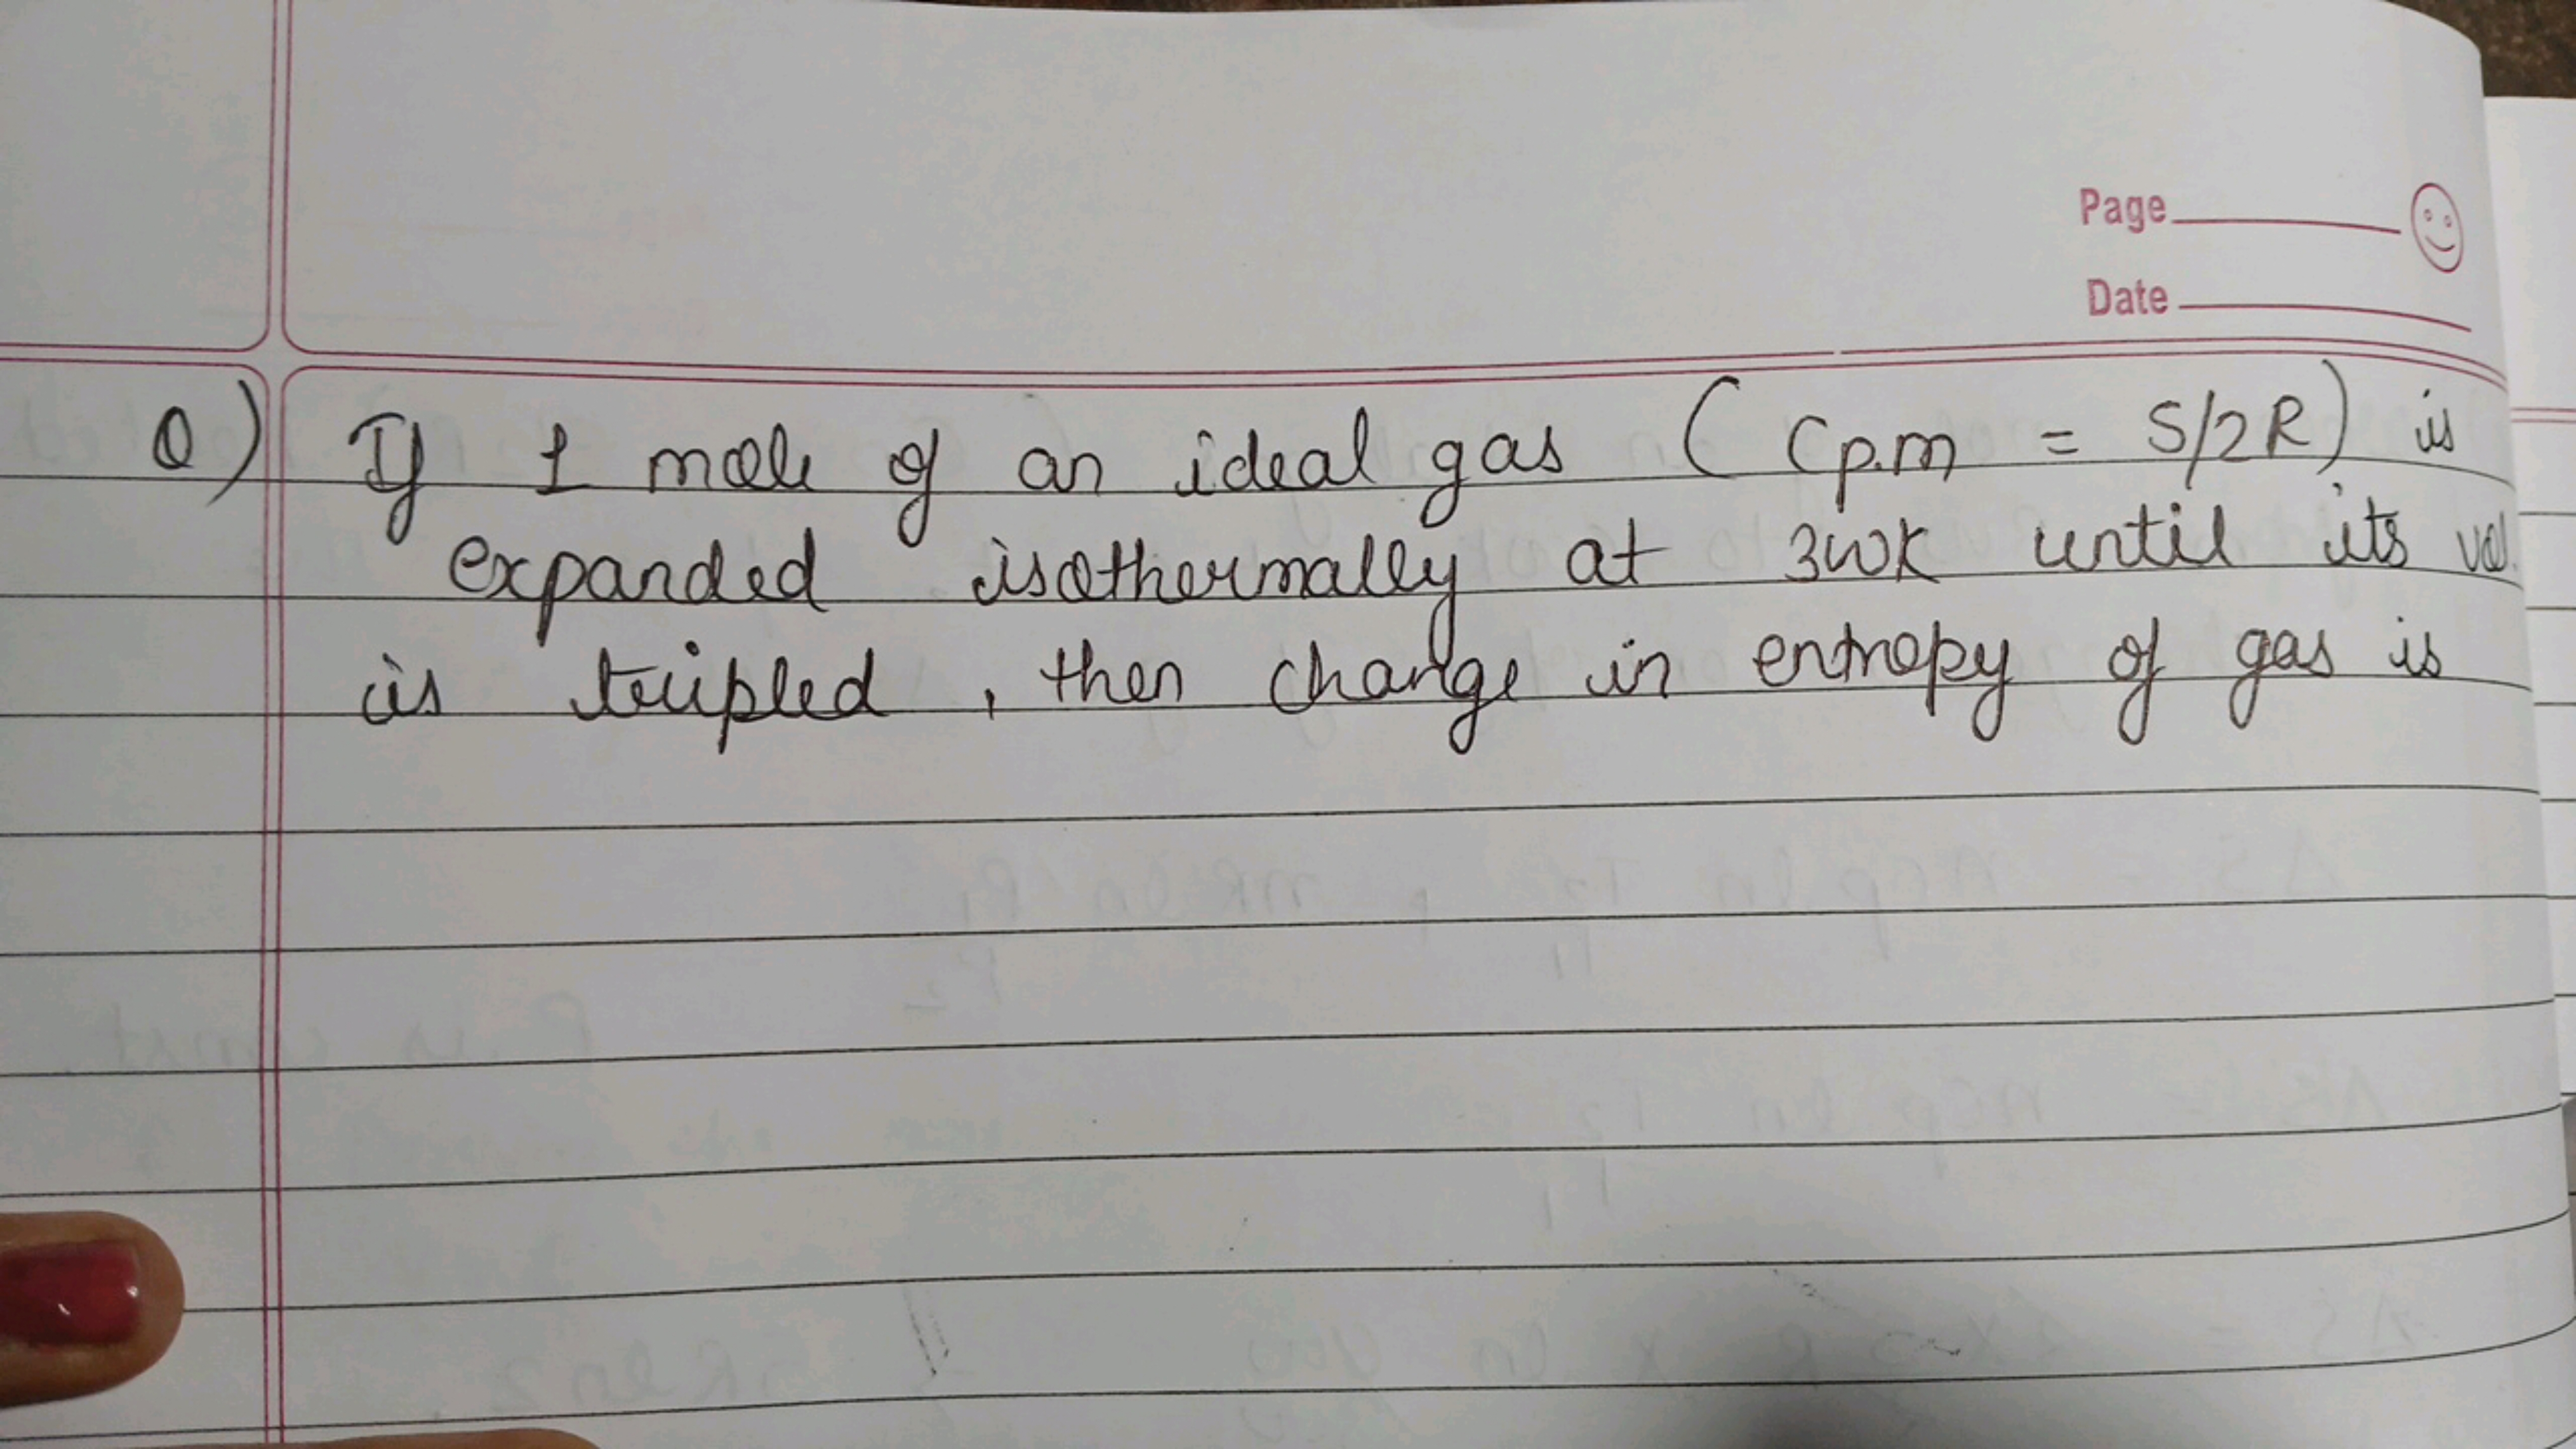 Page
Date
Q) If 1 mole of an ideal gas ( Cp.m = 5/2R) is
expanded isothermally at 300K until its vol.
is tripled, then change in entropy of gas is